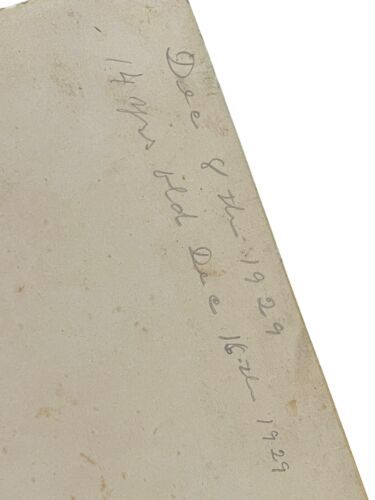 Dec 8th 1929
14 yrs old Dec 16th 1929